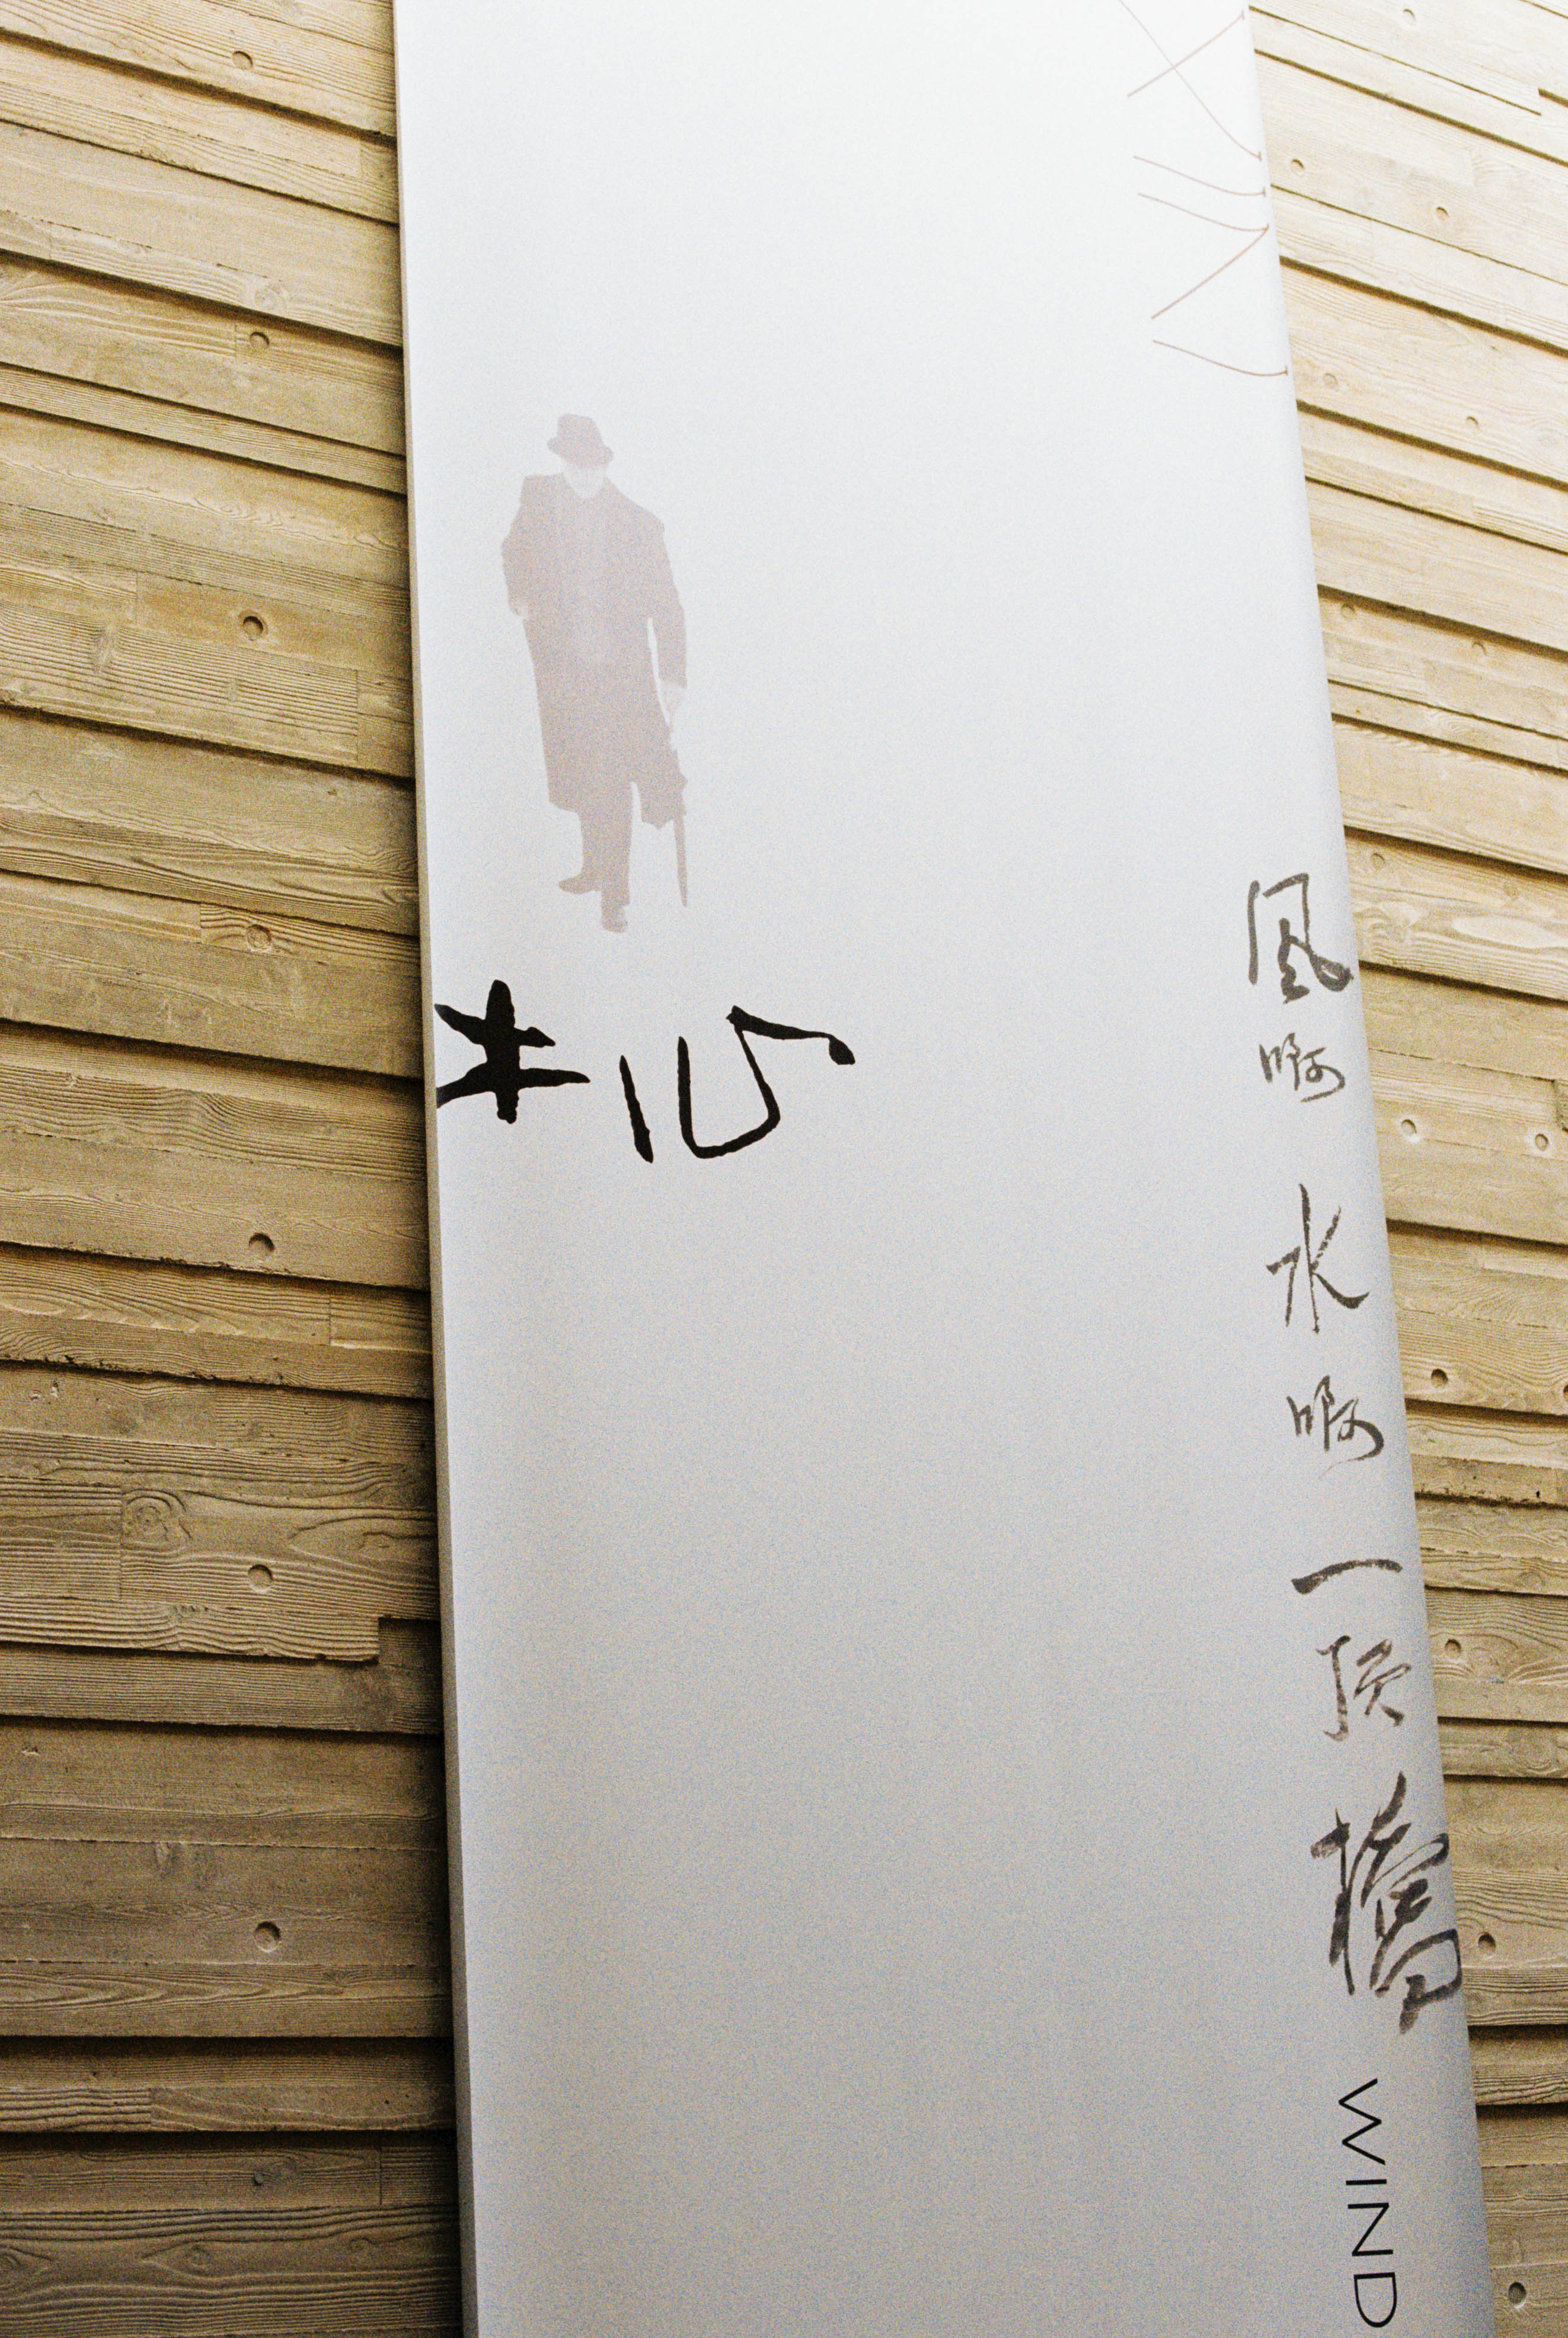 木心
風啊水啊一頂橋
WIND